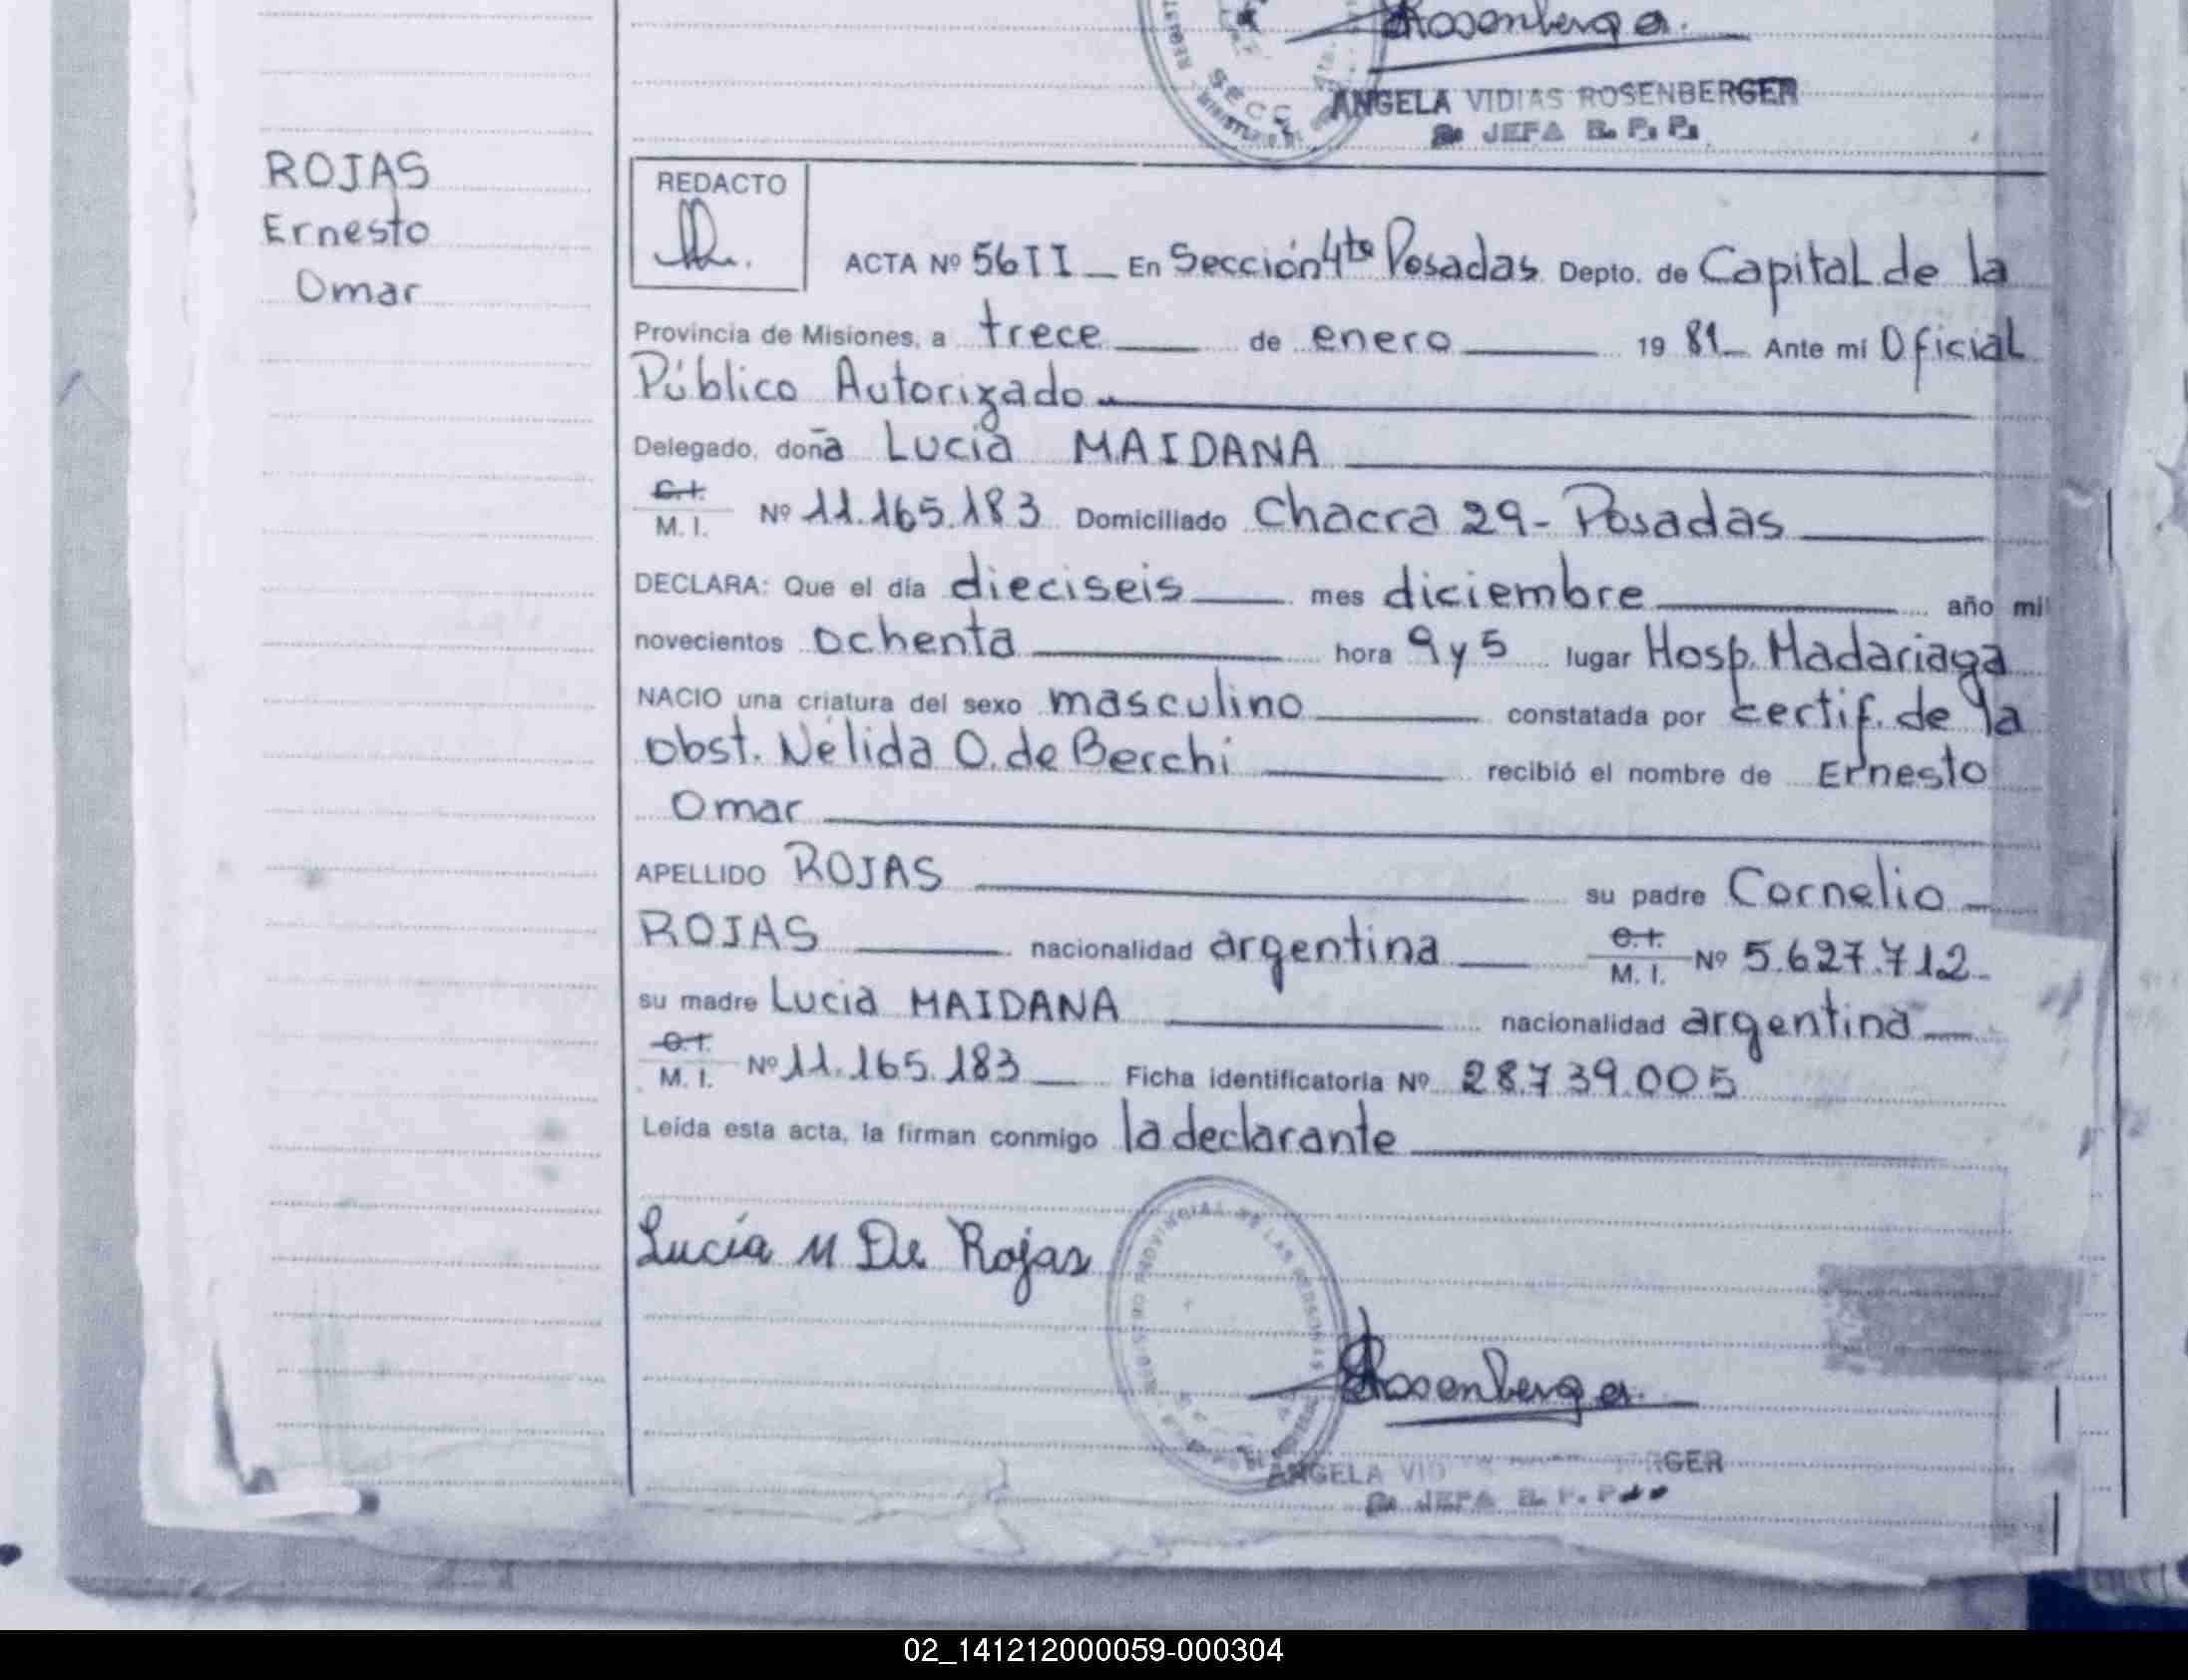 Rosenberger.
ANGELA VIDIAS ROSENBERGER
JEFA R. P. P.
ROJAS
Ernesto
Omar
REDACTO
ACTA Nº 56 II En Sección 4ta Posadas Depto. de Capital de la
Provincia de Misiones, a trece de enero 19 81 Ante mí Oficial
Público Autorizado
Delegado, doña Lucia MAIDANA
C.I.
M. I. Nº 11.165.183 Domiciliado Chacra 29 - Posadas
DECLARA: Que el día dieciseis mes diciembre año mil
novecientos ochenta hora 9 y 5 lugar Hosp. Madariaga
NACIO una criatura del sexo masculino constatada por certif. de la
obst. Nélida O. de Berchi recibió el nombre de Ernesto
Omar
APELLIDO ROJAS su padre Cornelio
ROJAS nacionalidad argentina C.I. M. I. Nº 5.627.712
su madre Lucia MAIDANA nacionalidad argentina
C.I.
M. I. Nº 11.165.183 Ficha identificatoria Nº 28.739.005
Leída esta acta, la firman conmigo la declarante
Lucía M De Rojas
PROVINCIAL DE LAS PERSONAS
Rosenberger.
ANGELA
JEFA R. P. P.
02_141212000059-000304